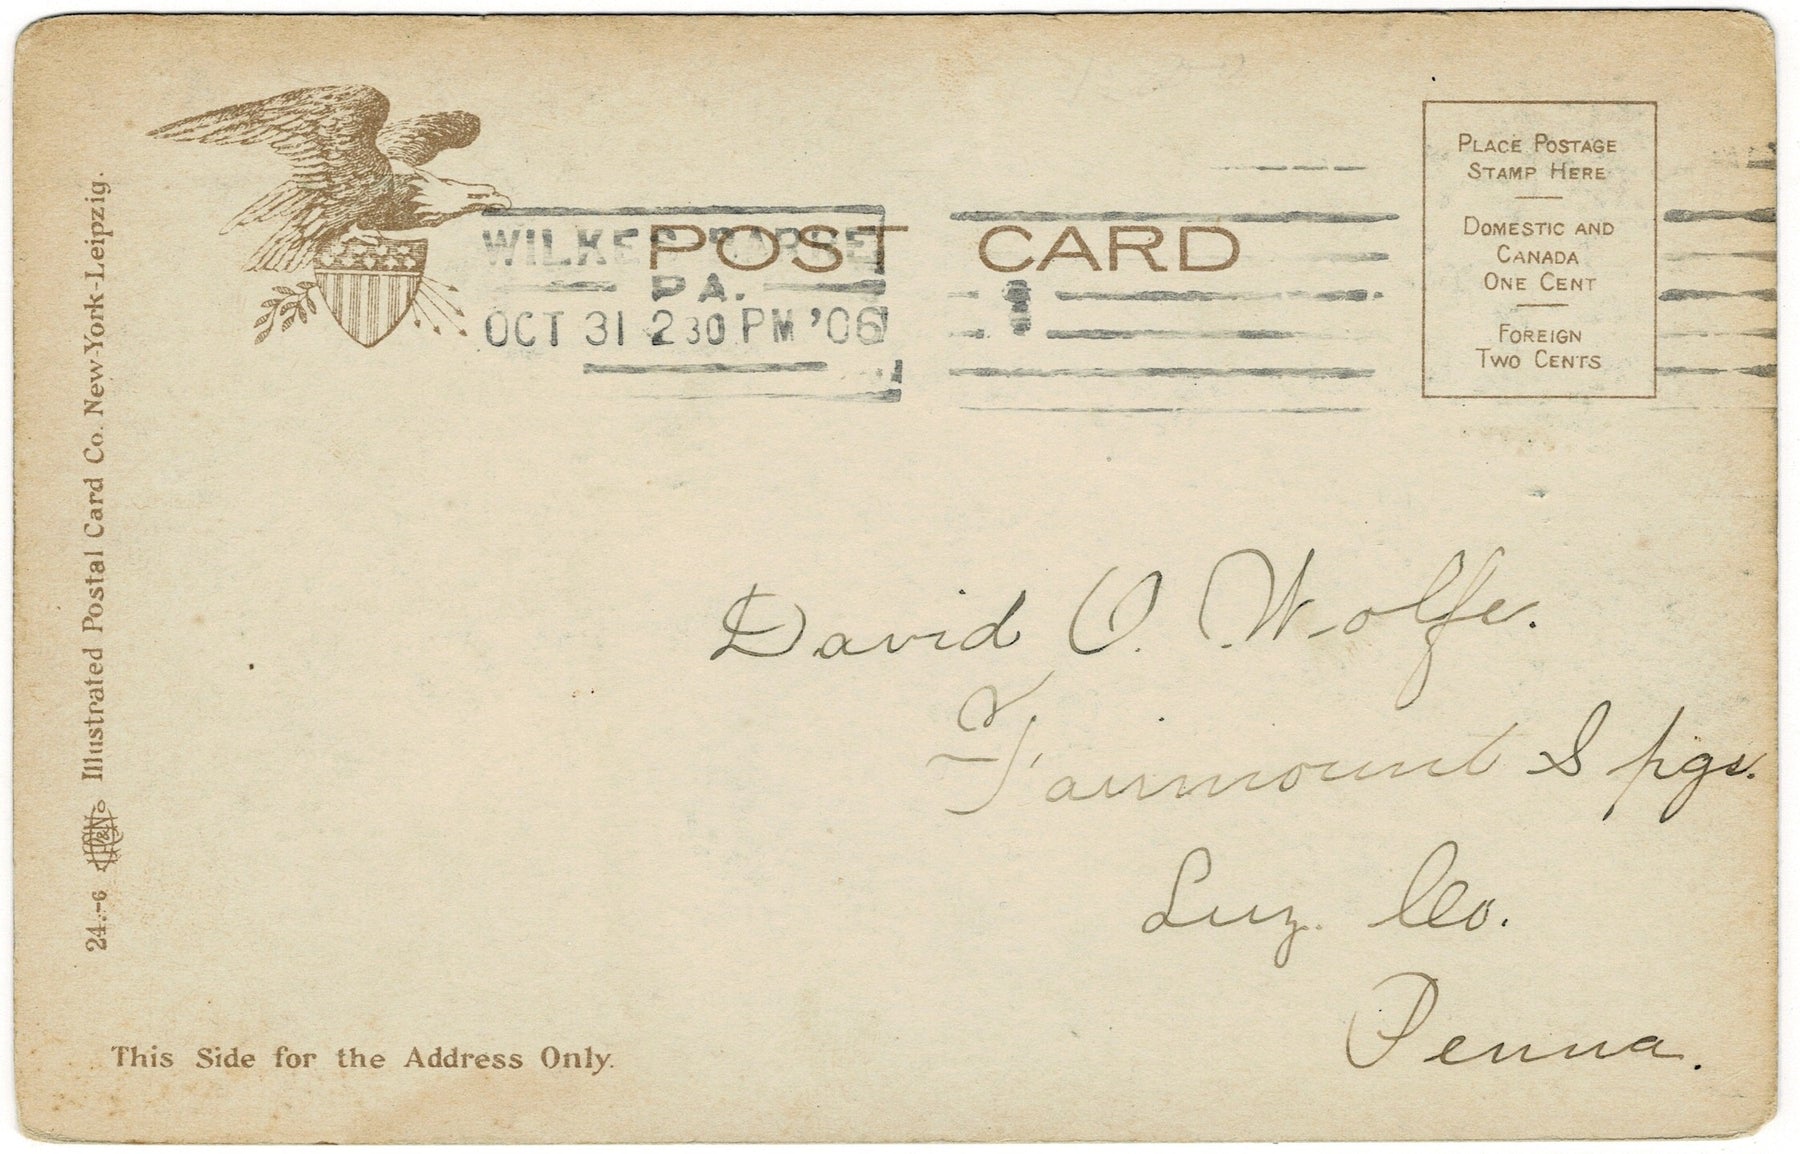 POST CARD
WILKES-BARRE
PA.
OCT 31 2 30 PM '06
1
PLACE POSTAGE
STAMP HERE
DOMESTIC AND
CANADA
ONE CENT
FOREIGN
TWO CENTS
David O. Wolfe.
Fairmount Spgs.
Luz. Co.
Penna.
This Side for the Address Only.
24.-6 Illustrated Postal Card Co. New-York-Leipzig.